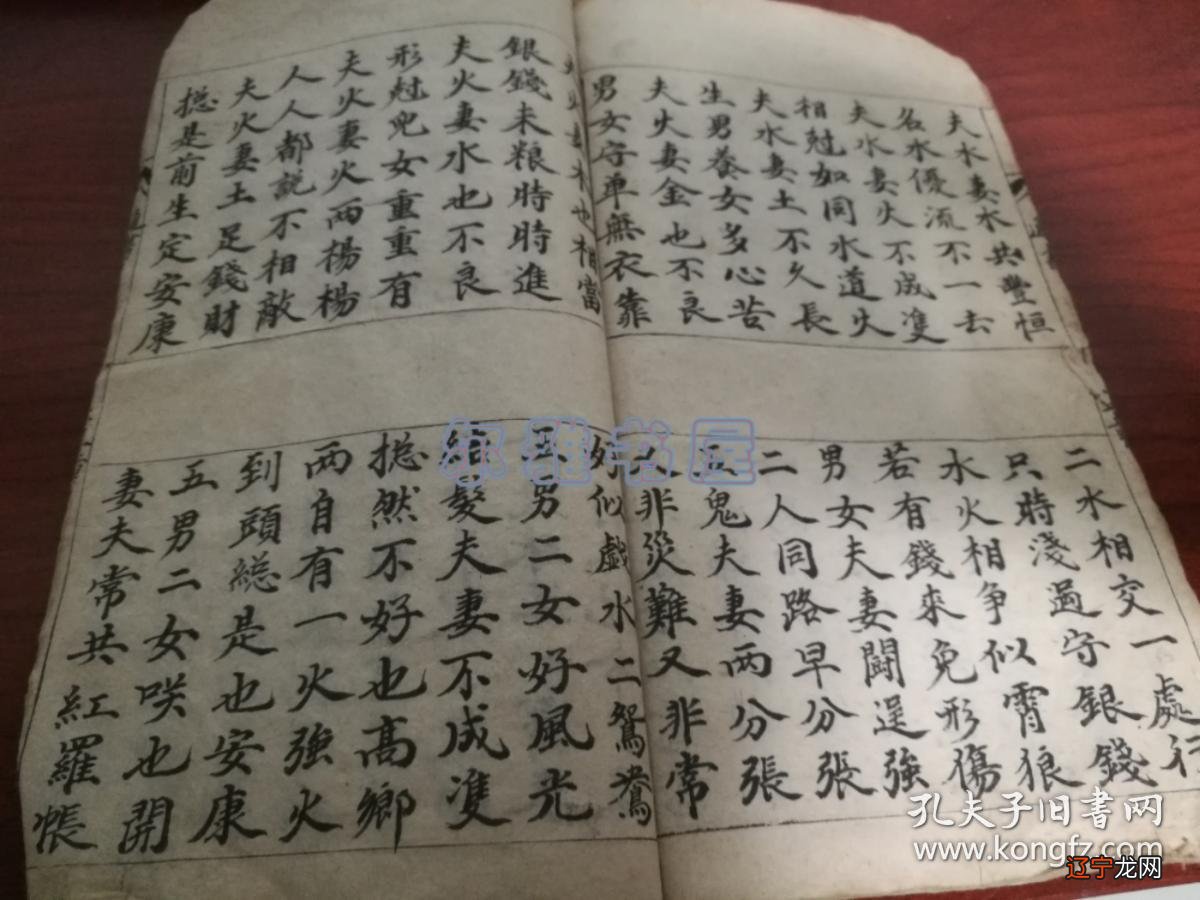 夫水妻水共豐恒
名水優流不一去
夫水妻火不成隻
相尅如同水道火
夫水妻土不久長
生男養女多心苦
夫火妻金也不良
男女守單無衣靠
二水相交一處行
只時淺過守銀錢
水火相争似霄狼
若有錢來免形傷
男女夫妻闘逞強
二人同路早分張
五鬼夫妻兩分張
人非災難又非常
夫火妻木也相當
銀錢未粮時時進
夫火妻水也不良
形尅兒女重重有
夫火妻火兩楊楊
人人都説不相敵
夫火妻土足錢財
捴是前生定安康
好似戲水二鴛鴦
五男二女好風光
結髮夫妻不成隻
捴然不好也高鄉
两自有一火強火
到頭緫是也安康
五男二女咲也開
妻夫常共紅羅帳
尔雅书屋
孔夫子旧书网
www.kongfz.com
辽宁龙网